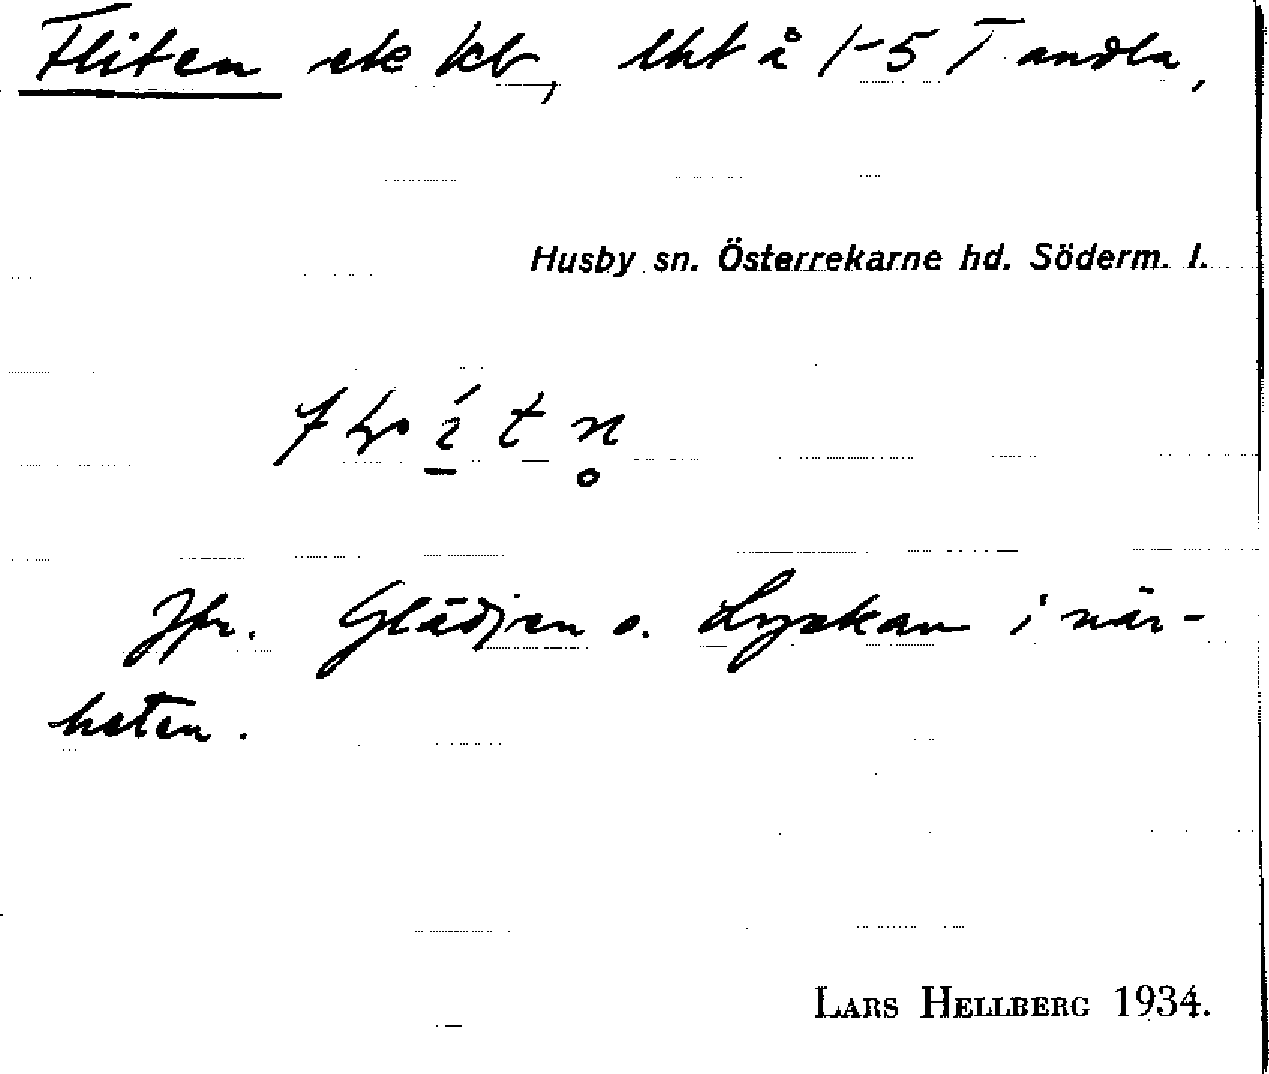 Fliten ek kb, lht å 1-5 Tandla,
Husby sn. Österrekarne hd. Söderm. l.
Jfr. Glädjen o. Lyckan i när-
heten.
LARS HELLBERG 1934.